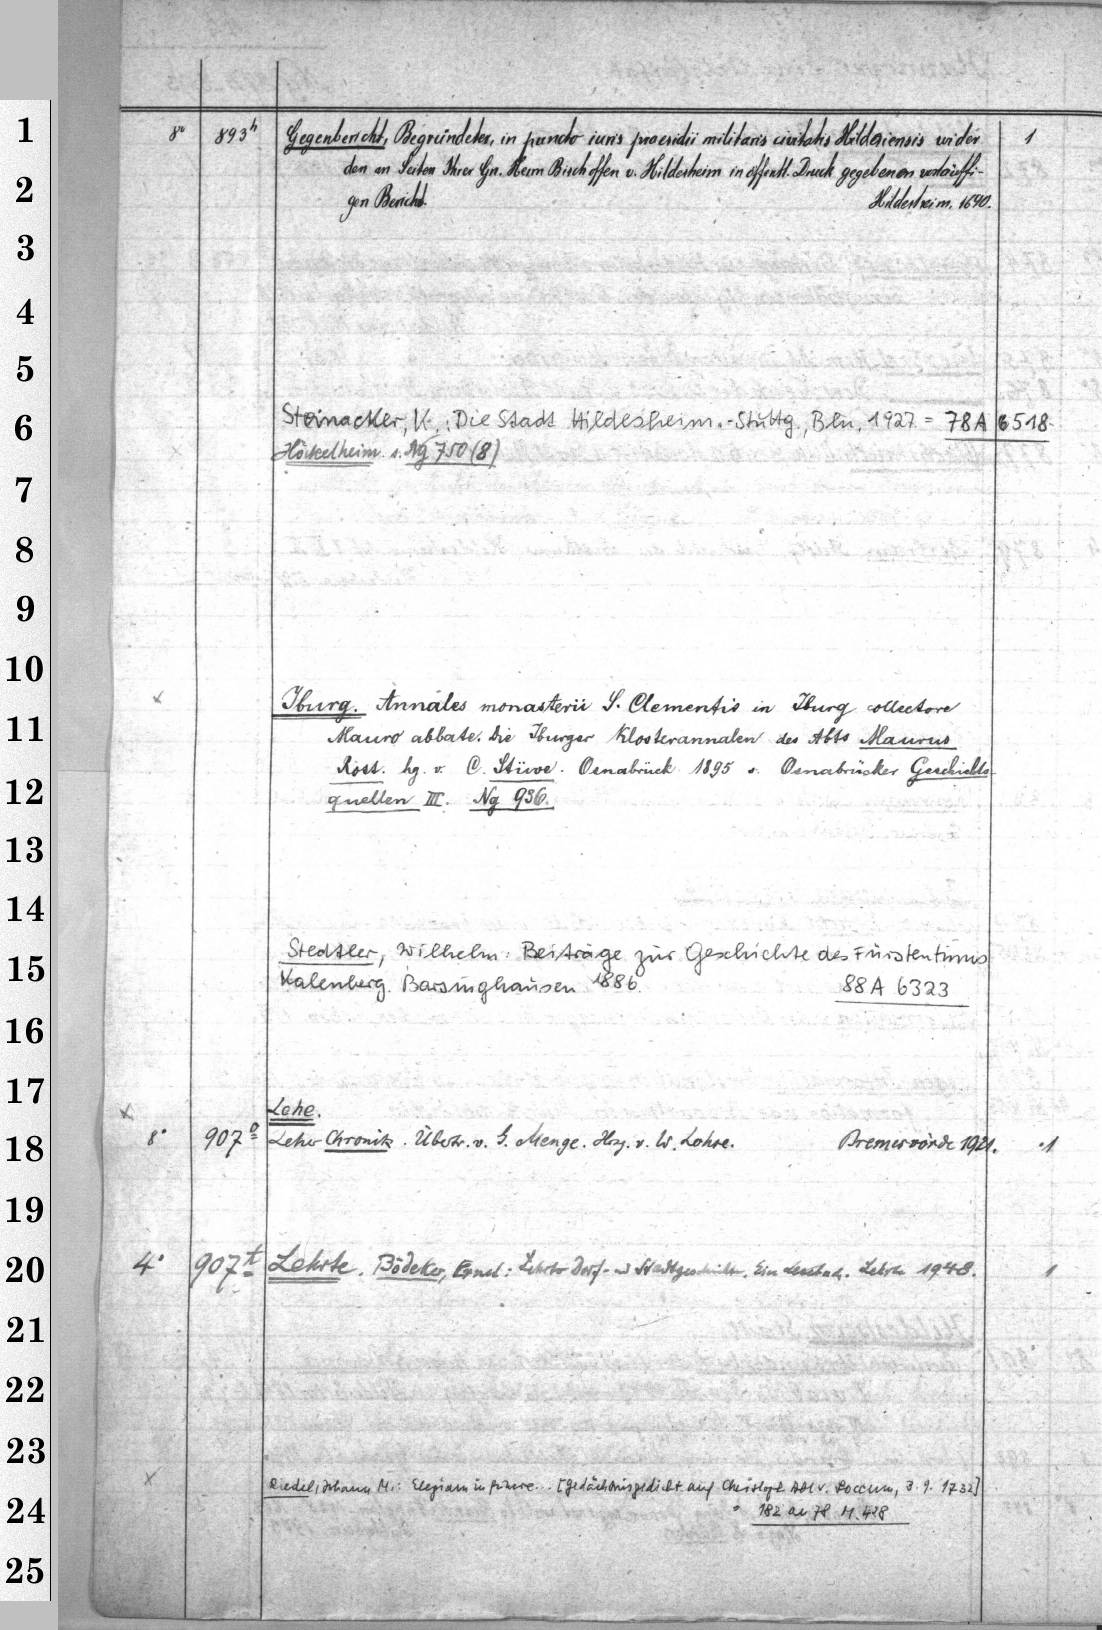 1
2
3
4
5
6
7
8
9
10
11
12
13
14
15
16
17
18
19
20
21
22
23
24
25
8° 893ʰ Gegenbericht, Begründeter, in puncto iuris praesidii militaris civitatis Hildesiensis wider 1
den an Seiten Ihrer Gn. Herrn Bischoffen v. Hildesheim in öffentl. Druck gegebenen vorläuffi-
gen Bericht. Hildesheim. 1640.
Steinacker, K.: Die Stadt Hildesheim. - Stuttg., Bln, 1927 = 78 A 6518
Höckelheim s. Ng 750 (8)
x Iburg. Annales monasterii S. Clementis in Iburg collectore
Mauro abbate. Die Iburger Klosterannalen des Abts Maurus
Rost. hg. v. C. Stüve. Osnabrück 1895 s. Osnabrücker Geschichts-
quellen III. Ng 936.
Stedtler, Wilhelm: Beiträge zur Geschichte des Fürstentums
Kalenberg. Barsinghausen 1886. 88 A 6323
x Lehe.
8° 907ᵒ Leher Chronik. Übertr. v. G. Menge. Hrg. v. W. Lohse. Bremervörde 1921. 1
4° 907ᵗ Lehrte. Bödeker, Ernst: Lehrter Dorf- und Stadtgeschichte. Ein Lesebuch. Lehrte 1948. 1
x Riedel, Johann M.: Elegiam in funere... [Gedächtnisgedicht auf Christoph Abt v. Loccum, 3. 9. 1732]
182 an 78 M. 428